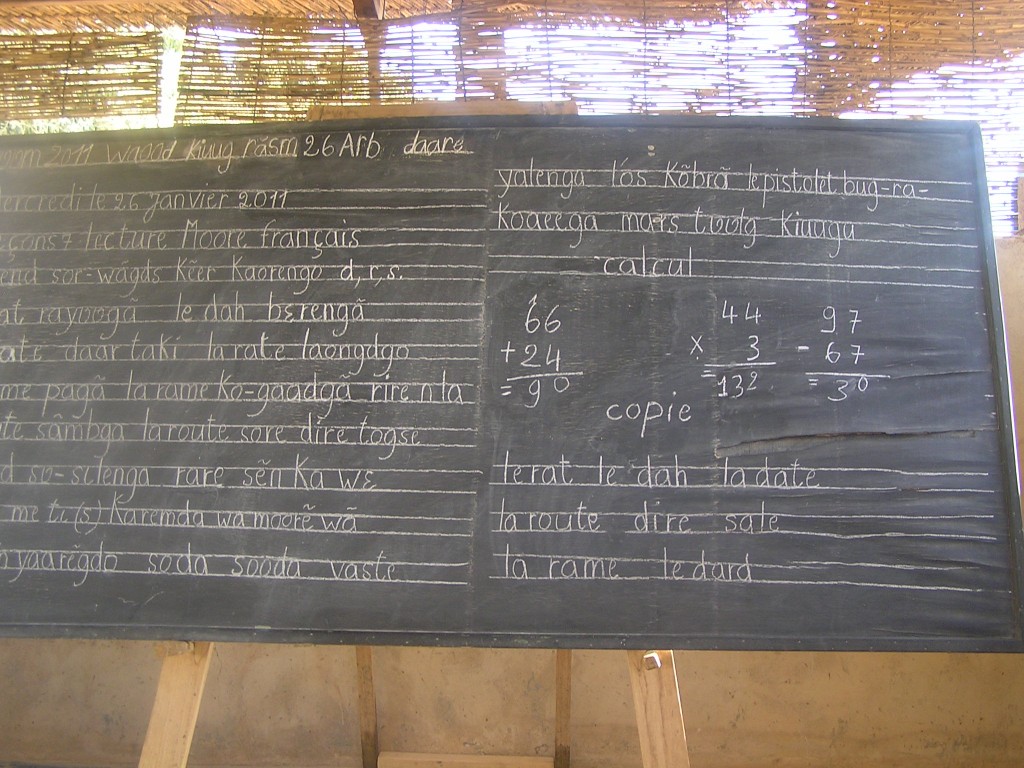 2011 waood kiuug rãsm 26 Arb daare
ercredi le 26 janvier 2011
eçons 7 lecture Moore français
end sor-wãgds Kẽer Kaorengo d, r, s.
at rayoogã le dah bɛrengã
ate daar taki la rate laongdgo
me pagã la rame Ko-gaadgã rire n la
te sãmbga la route sore dire togse
rare sẽn Ka wɛ
me tu (s) Karemda wa moorẽ wã
yaarẽgdo soda sooda vaste
yalenga lós Kõbrã le pistolet bug-ra-
Koaeega mars tʋʋlg Kiuugu
calcul
1
66
+ 24
= 90
44
x 3
= 132
97
- 67
= 30
copie
le rat le dah la date
la route dire sale
la rame le dard